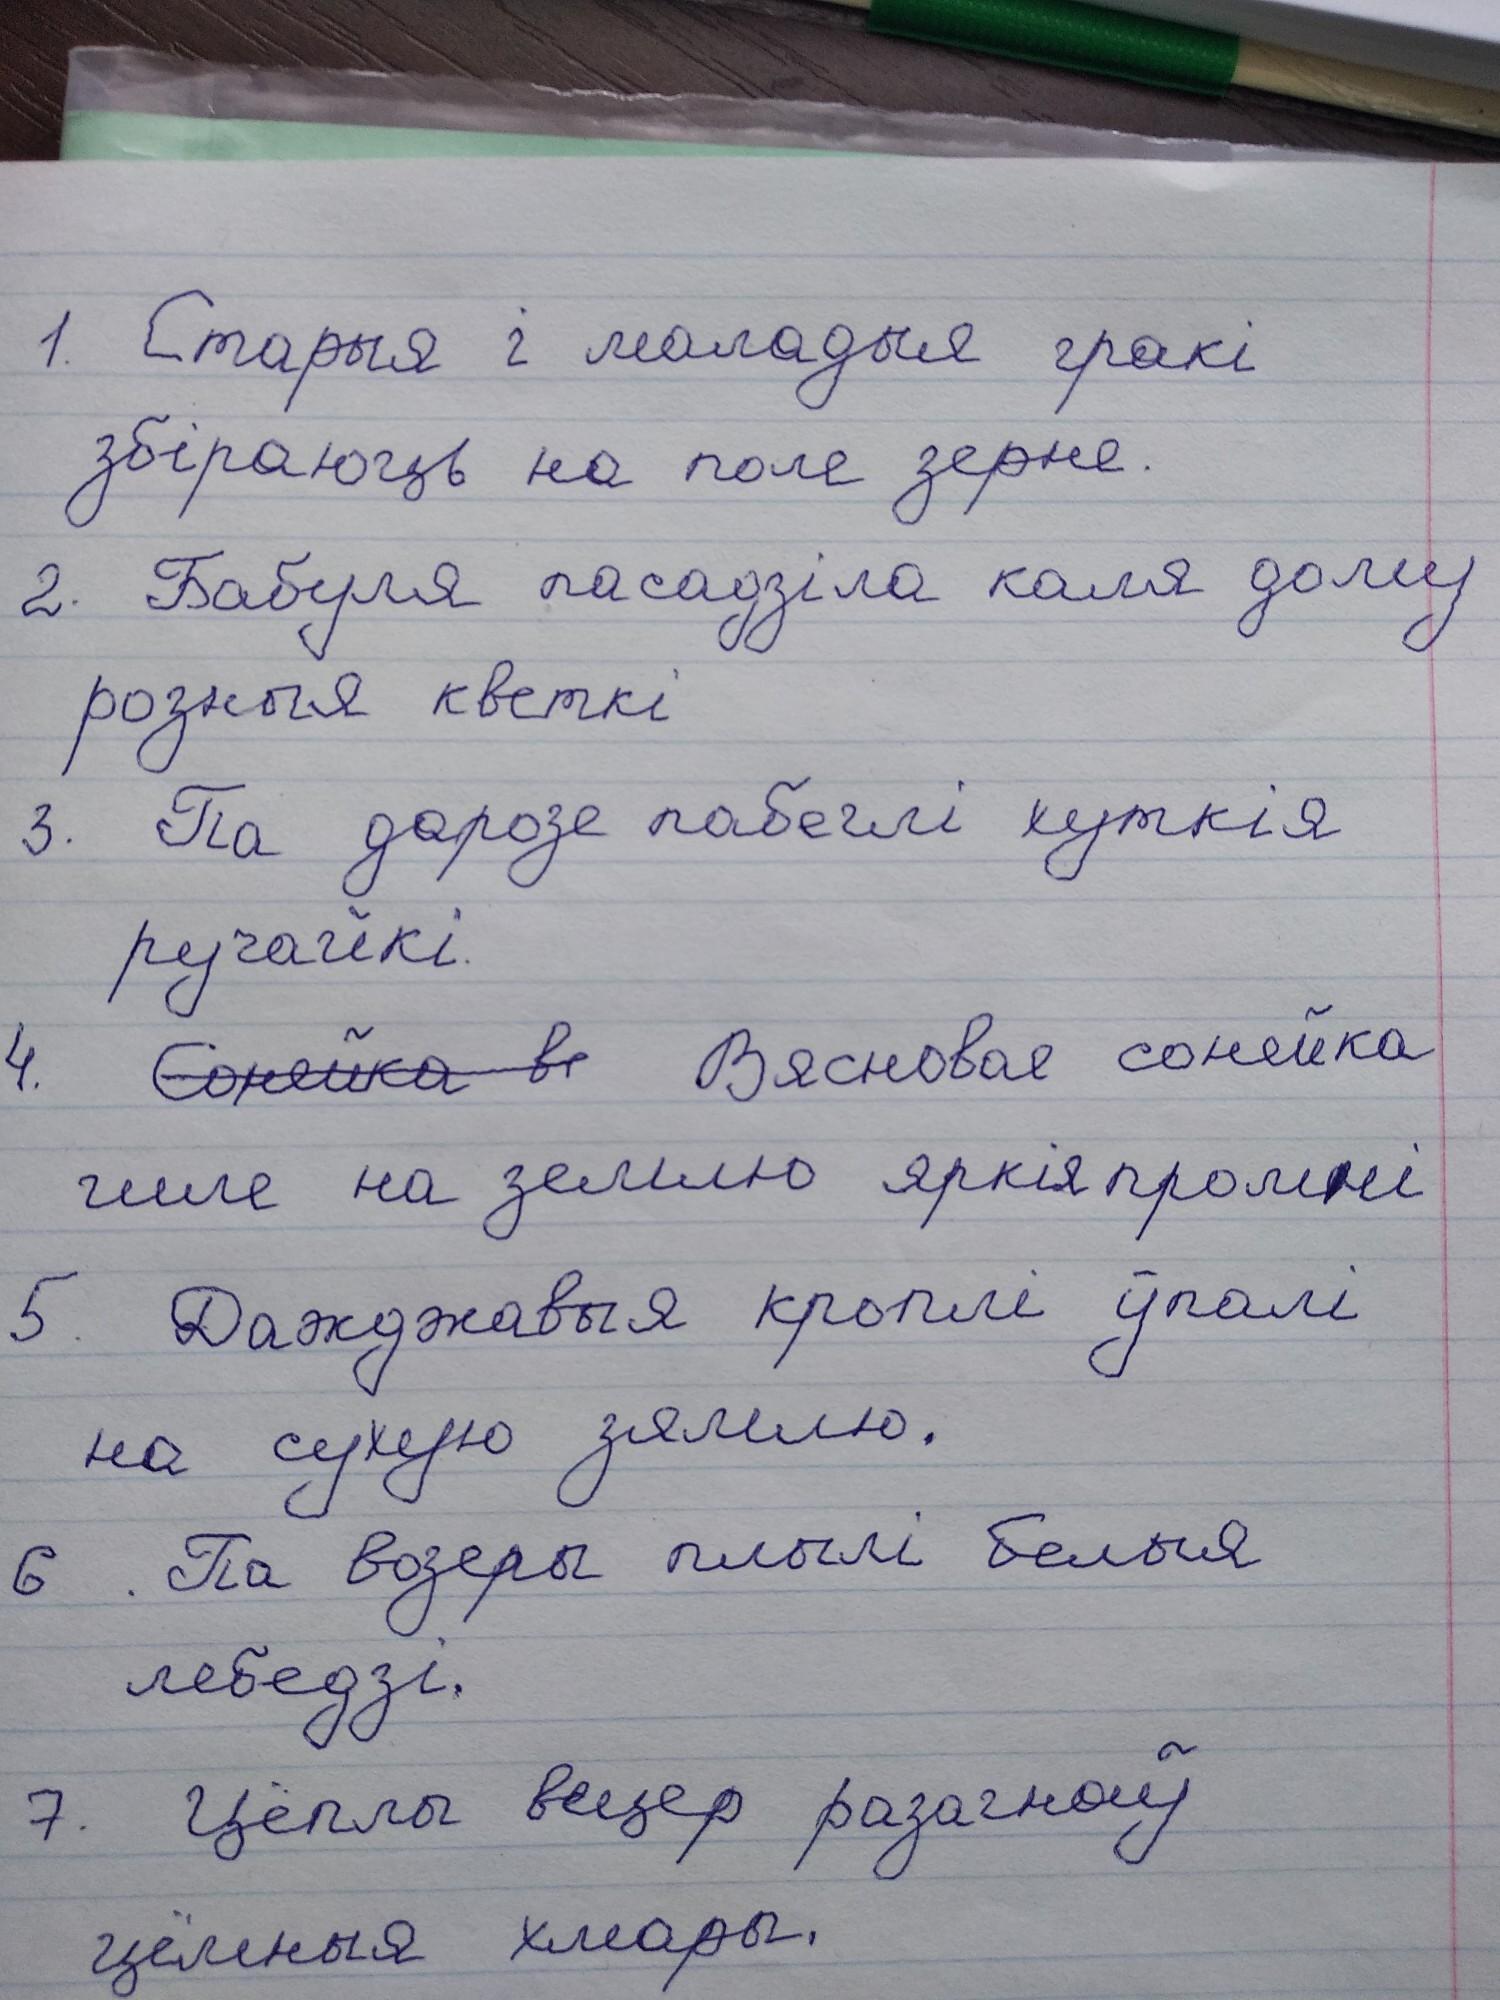 1. Старыя і маладыя гракі
збіраюць на поле зерне.
2. Бабуля пасадзіла каля дому
розныя кветкі
3. Па дарозе пабеглі хуткія
ручайкі.
4. Сонейка ве Вясновае сонейка
шле на землю яркія промні
5. Дажджавыя кроплі ўпалі
на сухую зямлю.
6. Па возеры плылі белыя
лебедзі.
7. Цёплы вецер разагнаў
цёмныя хмары.